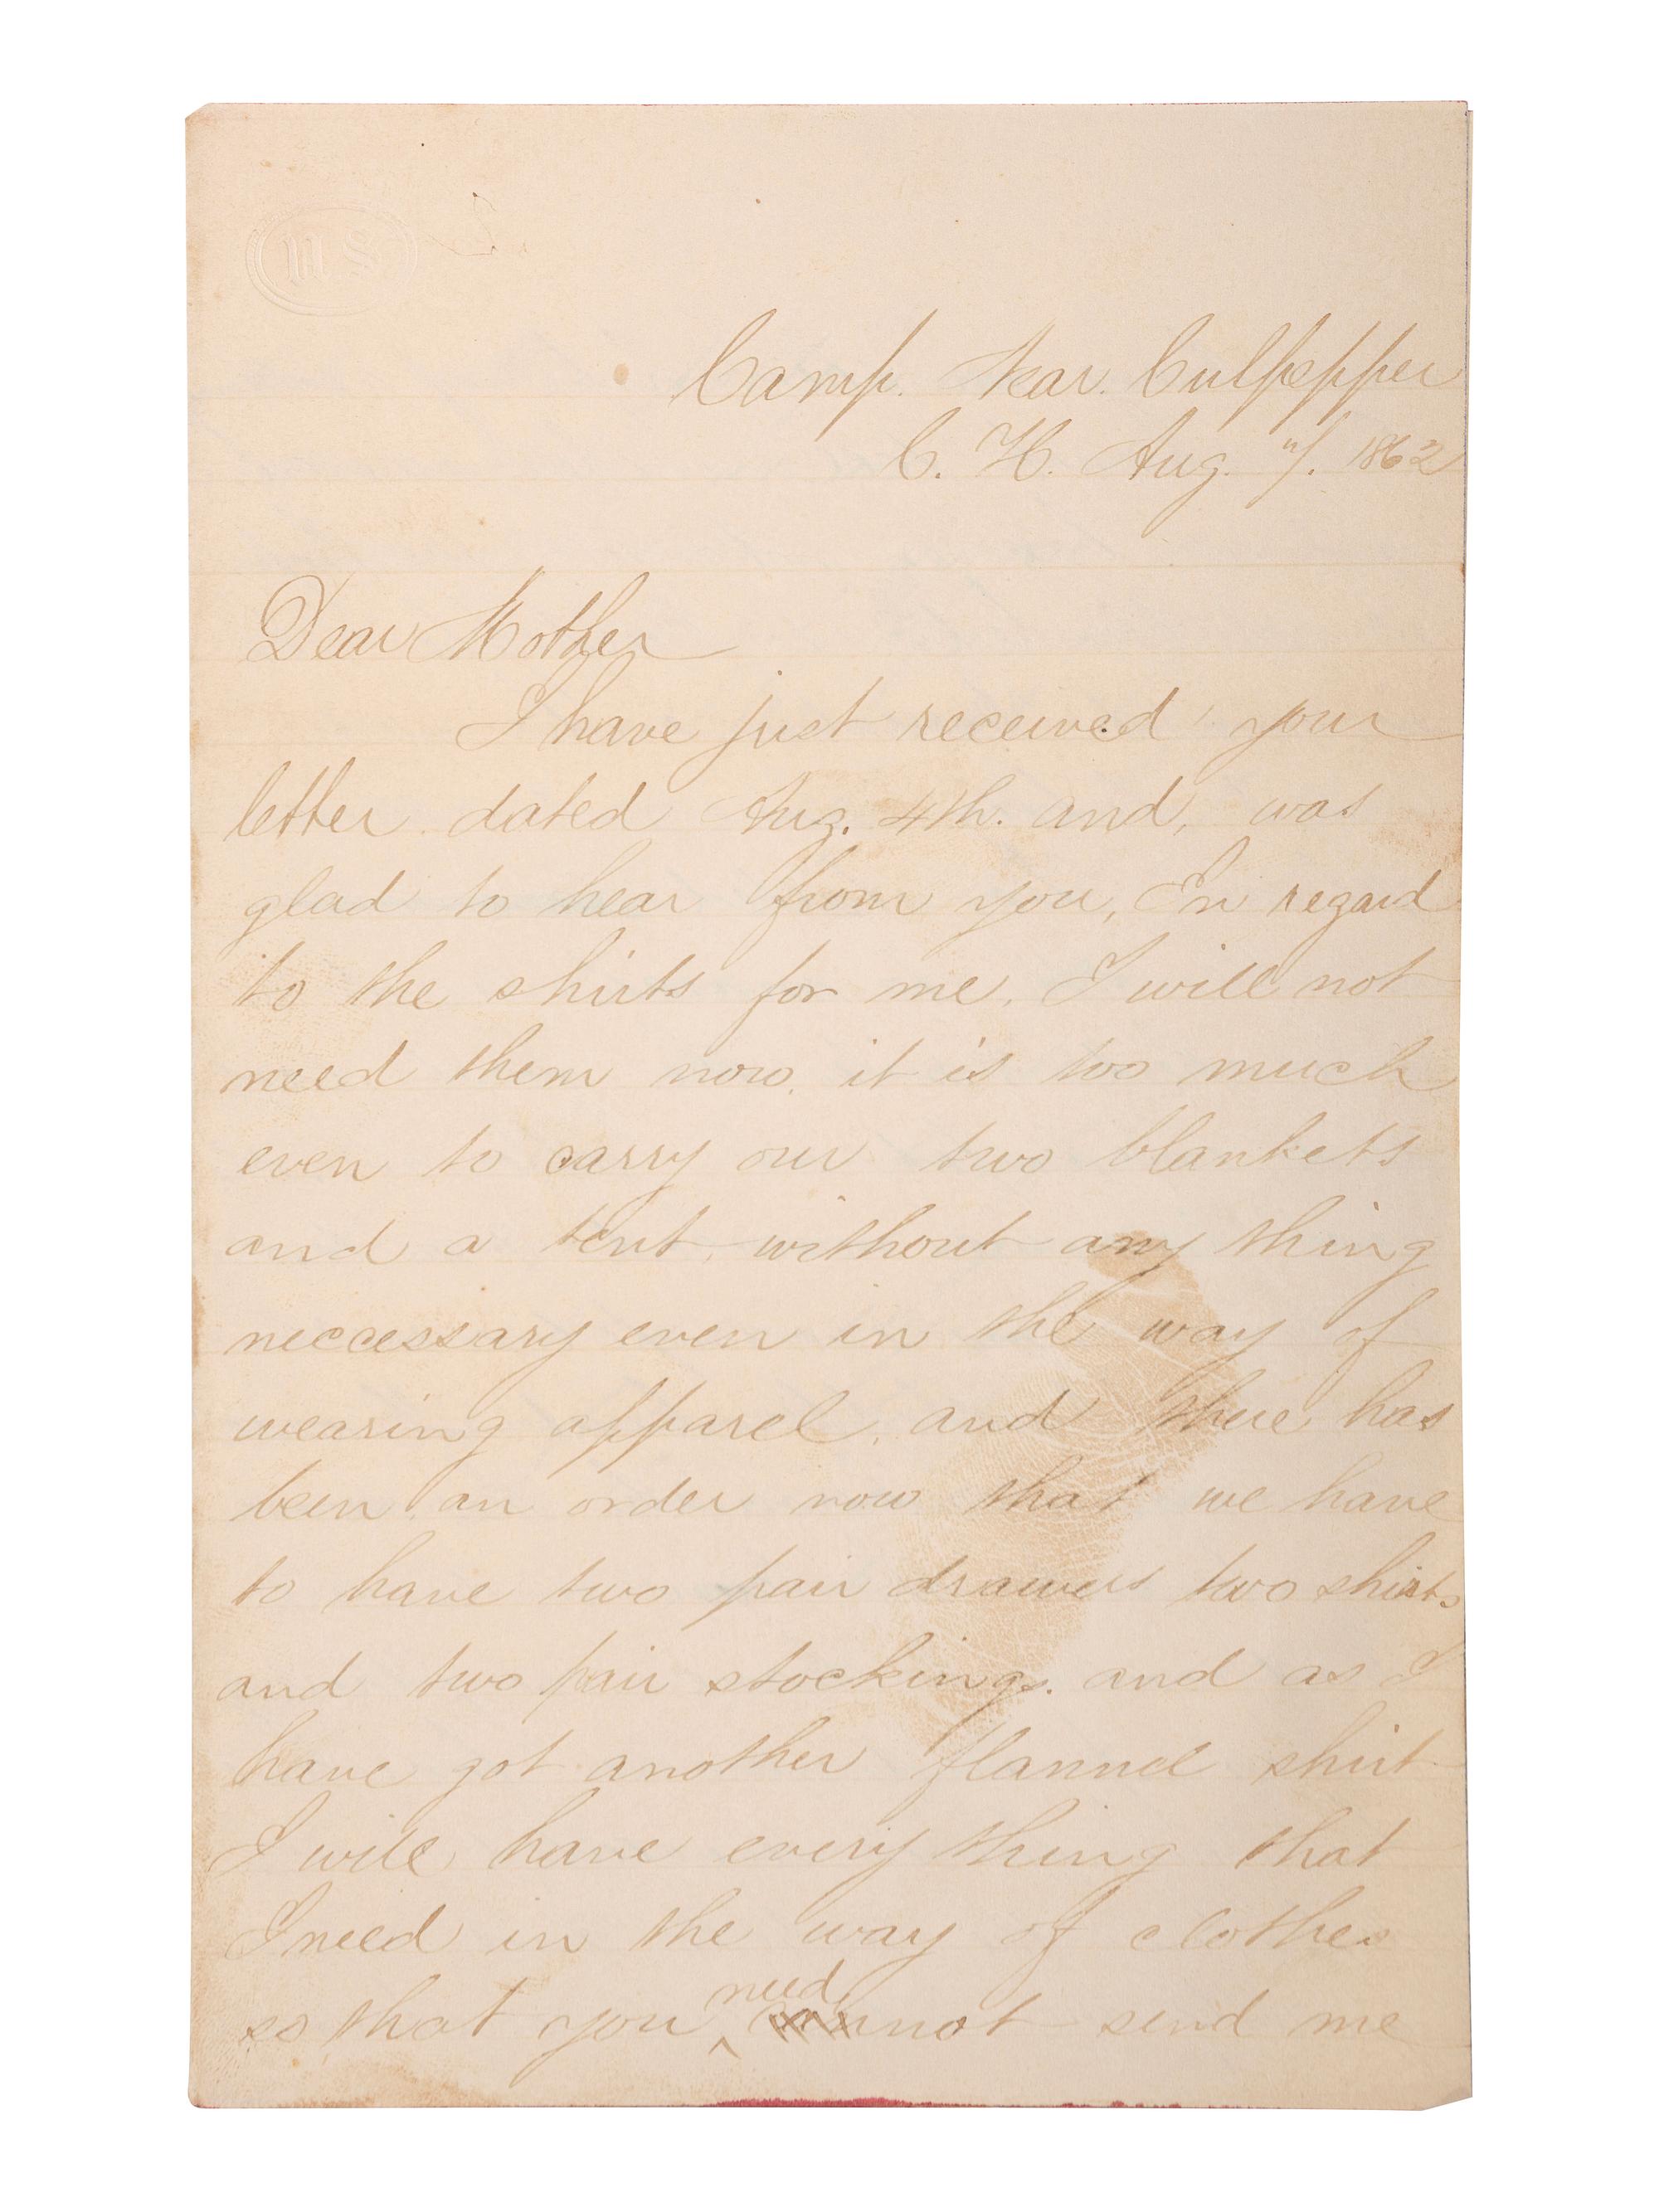 Camp. Near. Culpepper
C. H. Aug. 1862
Dear Mother
I have just received your
letter dated Aug. 4th. and, was
glad to hear from you, In regard
to the shirts for me. I will not
need them now. it is too much
even to carry our two blankets
and a tent without any thing
neccessary even in the way of
wearing apparel. and there has
been an order now that we have
to have two pair drawers two shirts
and two pair stockings. and as I
have got another flannel shirt
I will have every thing that
I need in the way of clothes
so that you need not send me